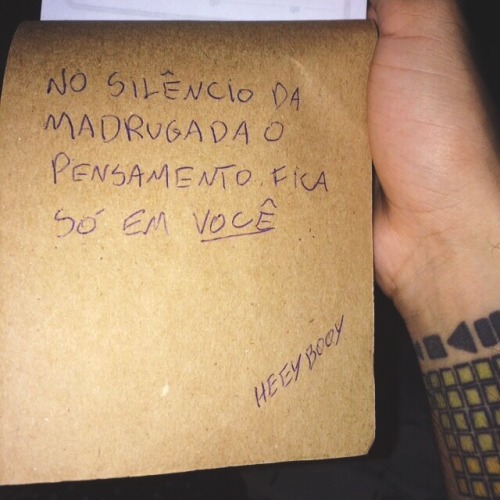 NO SILÊNCIO DA
MADRUGADA O
PENSAMENTO FICA
SÓ EM VOCÊ
HEEY BOOY